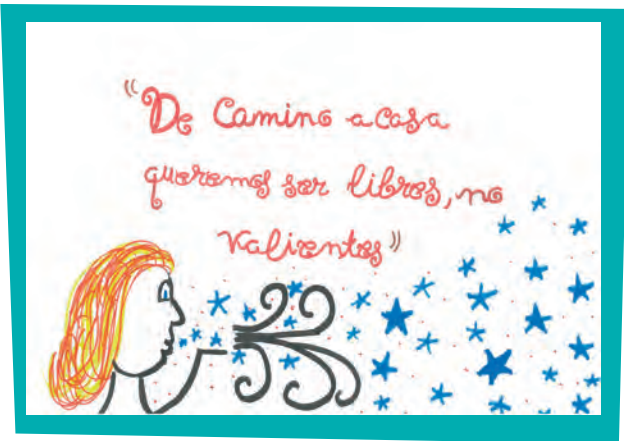 "De Camino a casa
queremos ser libres, no
valientes"